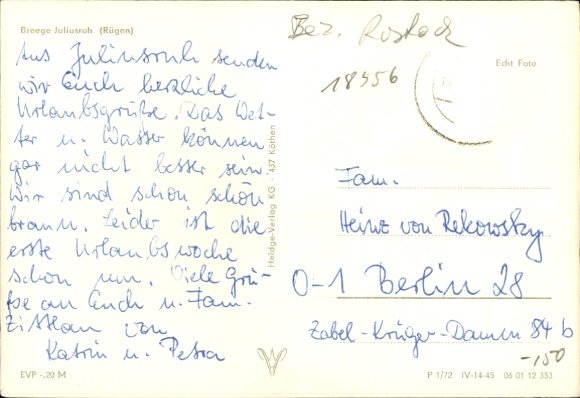 Breege-Juliusruh (Rügen)
Bez. Rostock
18556
Echt Foto
Aus Juliusruh senden
wir Euch herzliche
Urlaubsgrüße. Das Wet-
ter u. Wasser können
gar nicht besser sein.
Wir sind schon schön
braun. Leider ist die
erste Urlaubswoche
schon um. Viele Grü-
ße an Euch u. Fam.
Zittlau von
Katrin u. Petra
Heldge-Verlag KG · 437 Köthen
Fam.
Heinz von Rekowsky
0-1 Berlin 28
Zabel-Krüger-Damm 84 b
-150
EVP -,20 M
P 1/72 IV-14-45 06 01 12 353